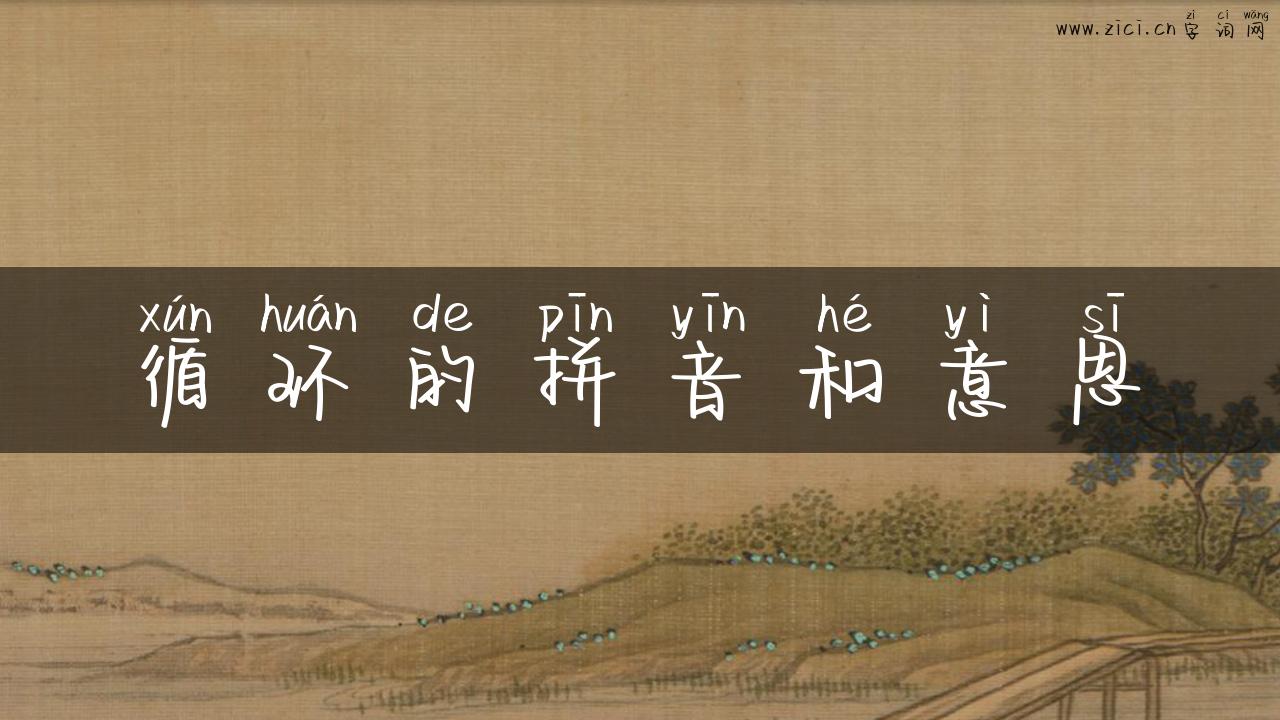 zì cí wǎng
www.zici.cn字词网
xún huán de pīn yīn hé yì sī
循环的拼音和意思